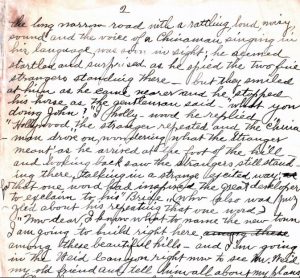 2
the long narrow road with a rattling loud, noisy
sound and the voice of a Chinaman, singing in
his language, was soon in sight, he seemed
startled and surprised as he spied the two fine
strangers standing there — but they smiled
at him as he came nearer and he stopped
his horse as the gentleman said — what you
doing John", "I Holly-wood he replied,
"Hollywood," the stranger repeated and the China-
man drove on, wondering what the stranger
meant as he arrived at the foot of the hill
and looking back saw the strangers still stand-
ing there, talking in a strange excited way,
that one word had inspired the great developer
to explain to his Bride, (who also was
about his repeating that one word
"My dear, I know what to name the new town
I am going to build right here
among these beautiful hills — and I'm going
in the Canyon right now to see Mr. Weid
my old friend and tell him all about my plans